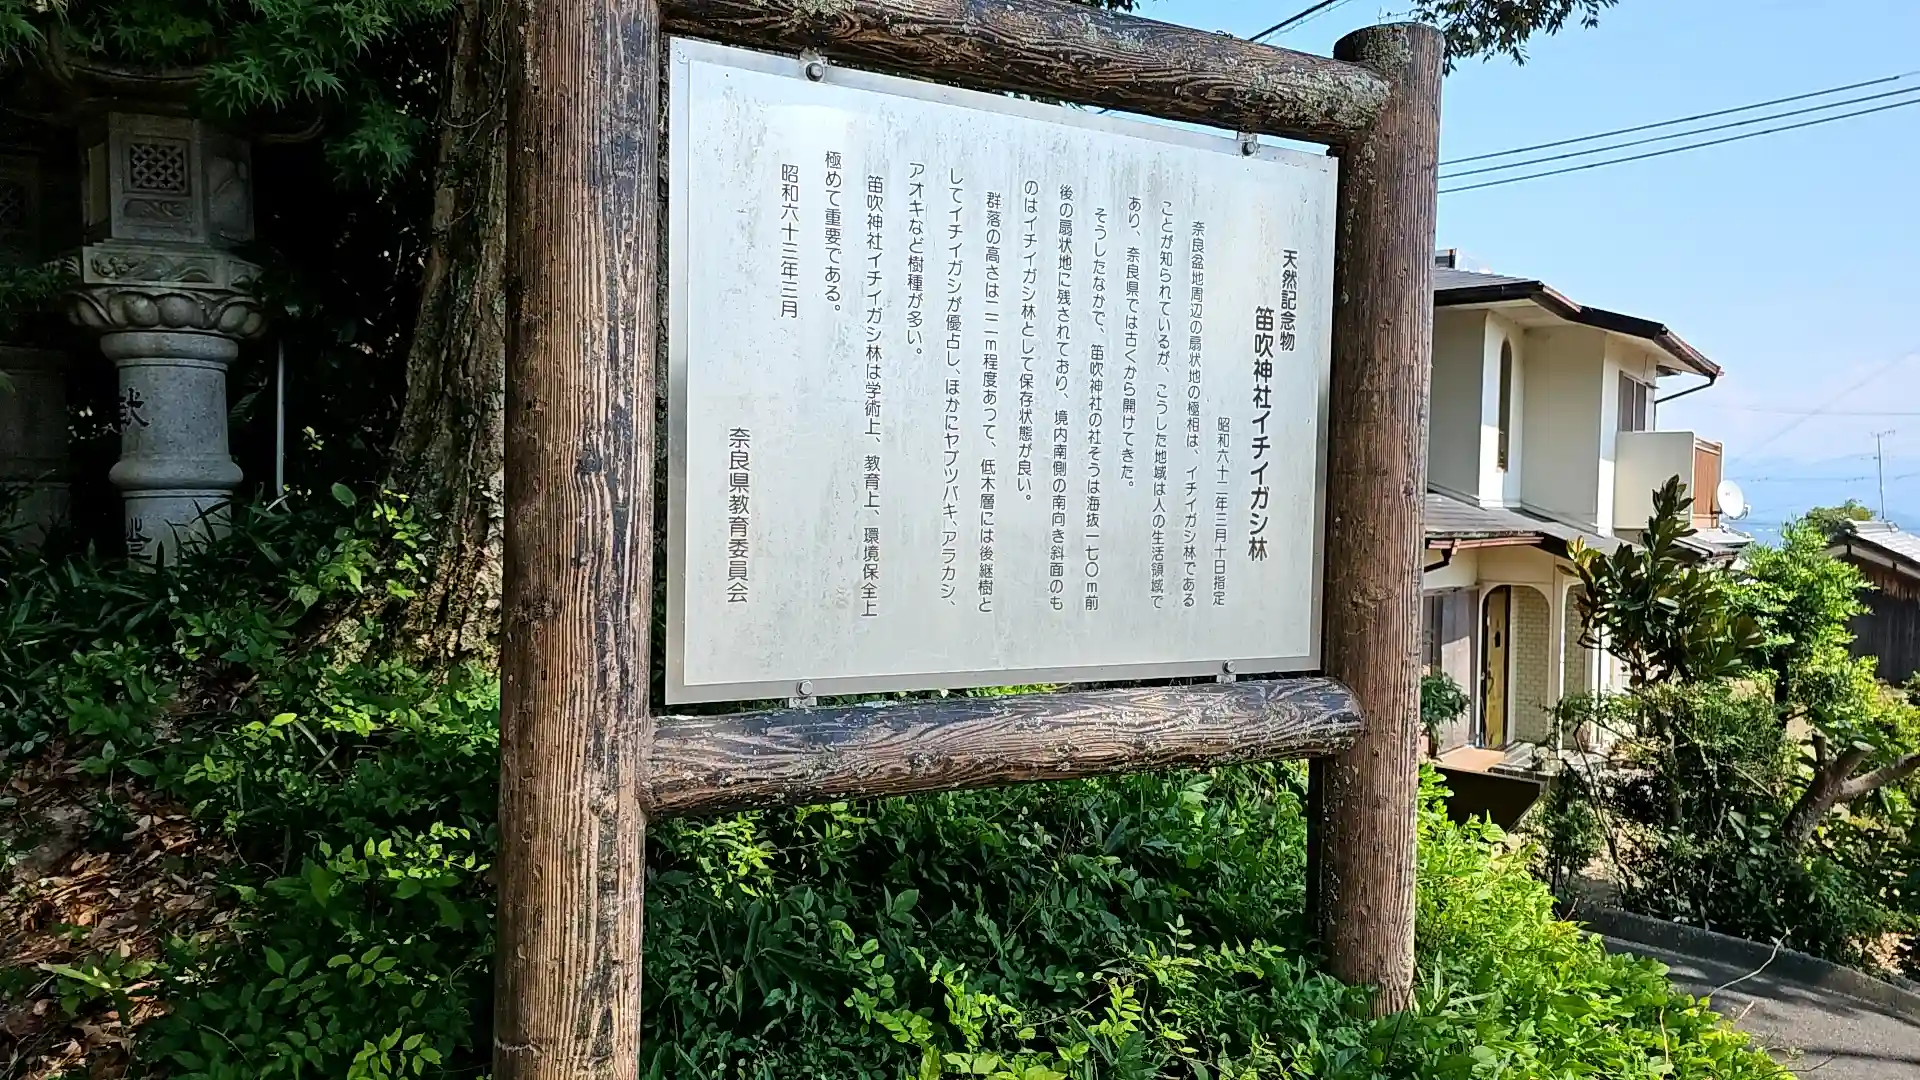 天然記念物
笛吹神社イチイガシ林
昭和六十二年三月十日指定
奈良盆地周辺の扇状地の極相は、イチイガシ林である
ことが知られているが、こうした地域は人の生活領域で
あり、奈良県では古くから開けてきた。
そうしたなかで、笛吹神社の社そうは海抜一七〇m前
後の扇状地に残されており、境内南側の南向き斜面のも
のはイチイガシ林として保存状態が良い。
群落の高さは二二m程度あって、低木層には後継樹と
してイチイガシが優占し、ほかにヤブツバキ、アラカシ、
アオキなど樹種が多い。
笛吹神社イチイガシ林は学術上、教育上、環境保全上
極めて重要である。
昭和六十三年三月
奈良県教育委員会
献